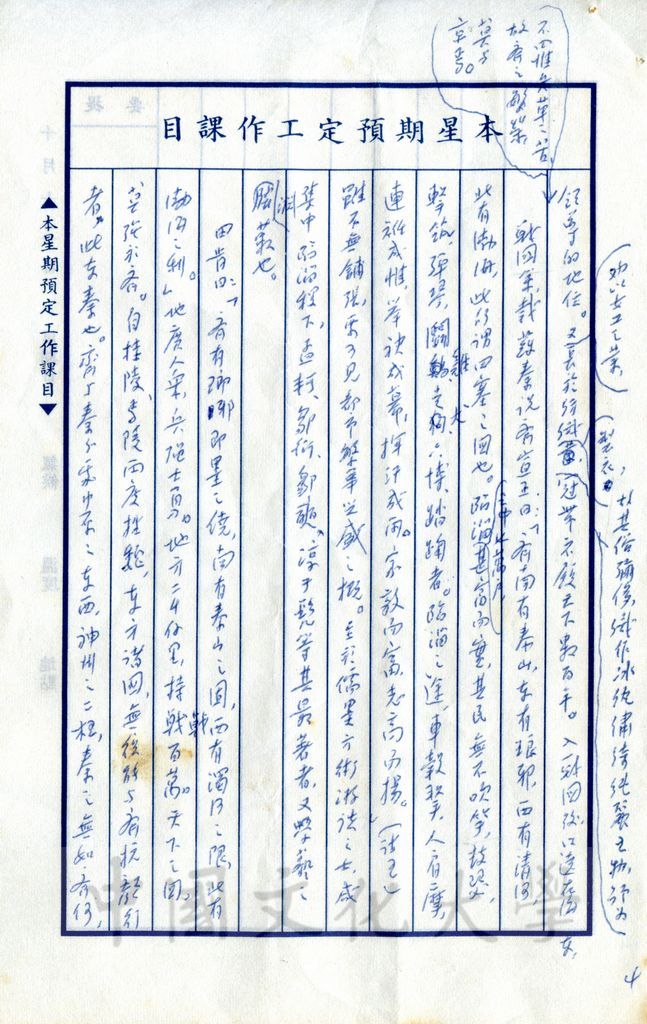 本星期預定工作課目
不罹兵革之苦
故齊之繁榮
莫與
京焉。
勸以女工之業
製衣
故其俗彌侈,織作冰紈綺繡純麗之物,號為
領導的地位。又長於紡織 冠帶衣履天下數百年。入戰國後
戰國策載蘇秦說齊宣王曰:「齊南有泰山,東有琅邪,西有清河
北有渤海,此所謂四塞之國也。臨淄甚富而實,其民無不吹竽、鼓瑟、
擊筑、彈琴、鬬雞、走犬、六博、蹹踘者。臨淄之途,車轂擊,人肩摩,
連袵成帷,舉袂成幕,揮汗成雨。家敦而富,志高而揚。
雖不無鋪張,要可見都市繁華之盛之概。至於儒墨方術游談之士,咸
集中臨淄稷下,孟軻、鄒衍、鄒奭、淳于髡等其最著者,又學藝之
淵藪也。
田肯曰:「齊有琅邪即墨之饒,南有泰山之固,西有濁河之限,北有
渤海之利。」地廣人眾,兵強士勇。地方二千餘里,持戟百萬。天下之國,
莫強於齊。自桂陵、馬陵兩度挫魏,東方諸國,無復能與齊抗顏行
者,此東秦也。齊與秦分處中原之東西,神州之二極,秦之無如齊何,
▲本星期預定工作課目▼
中國文化大學
4